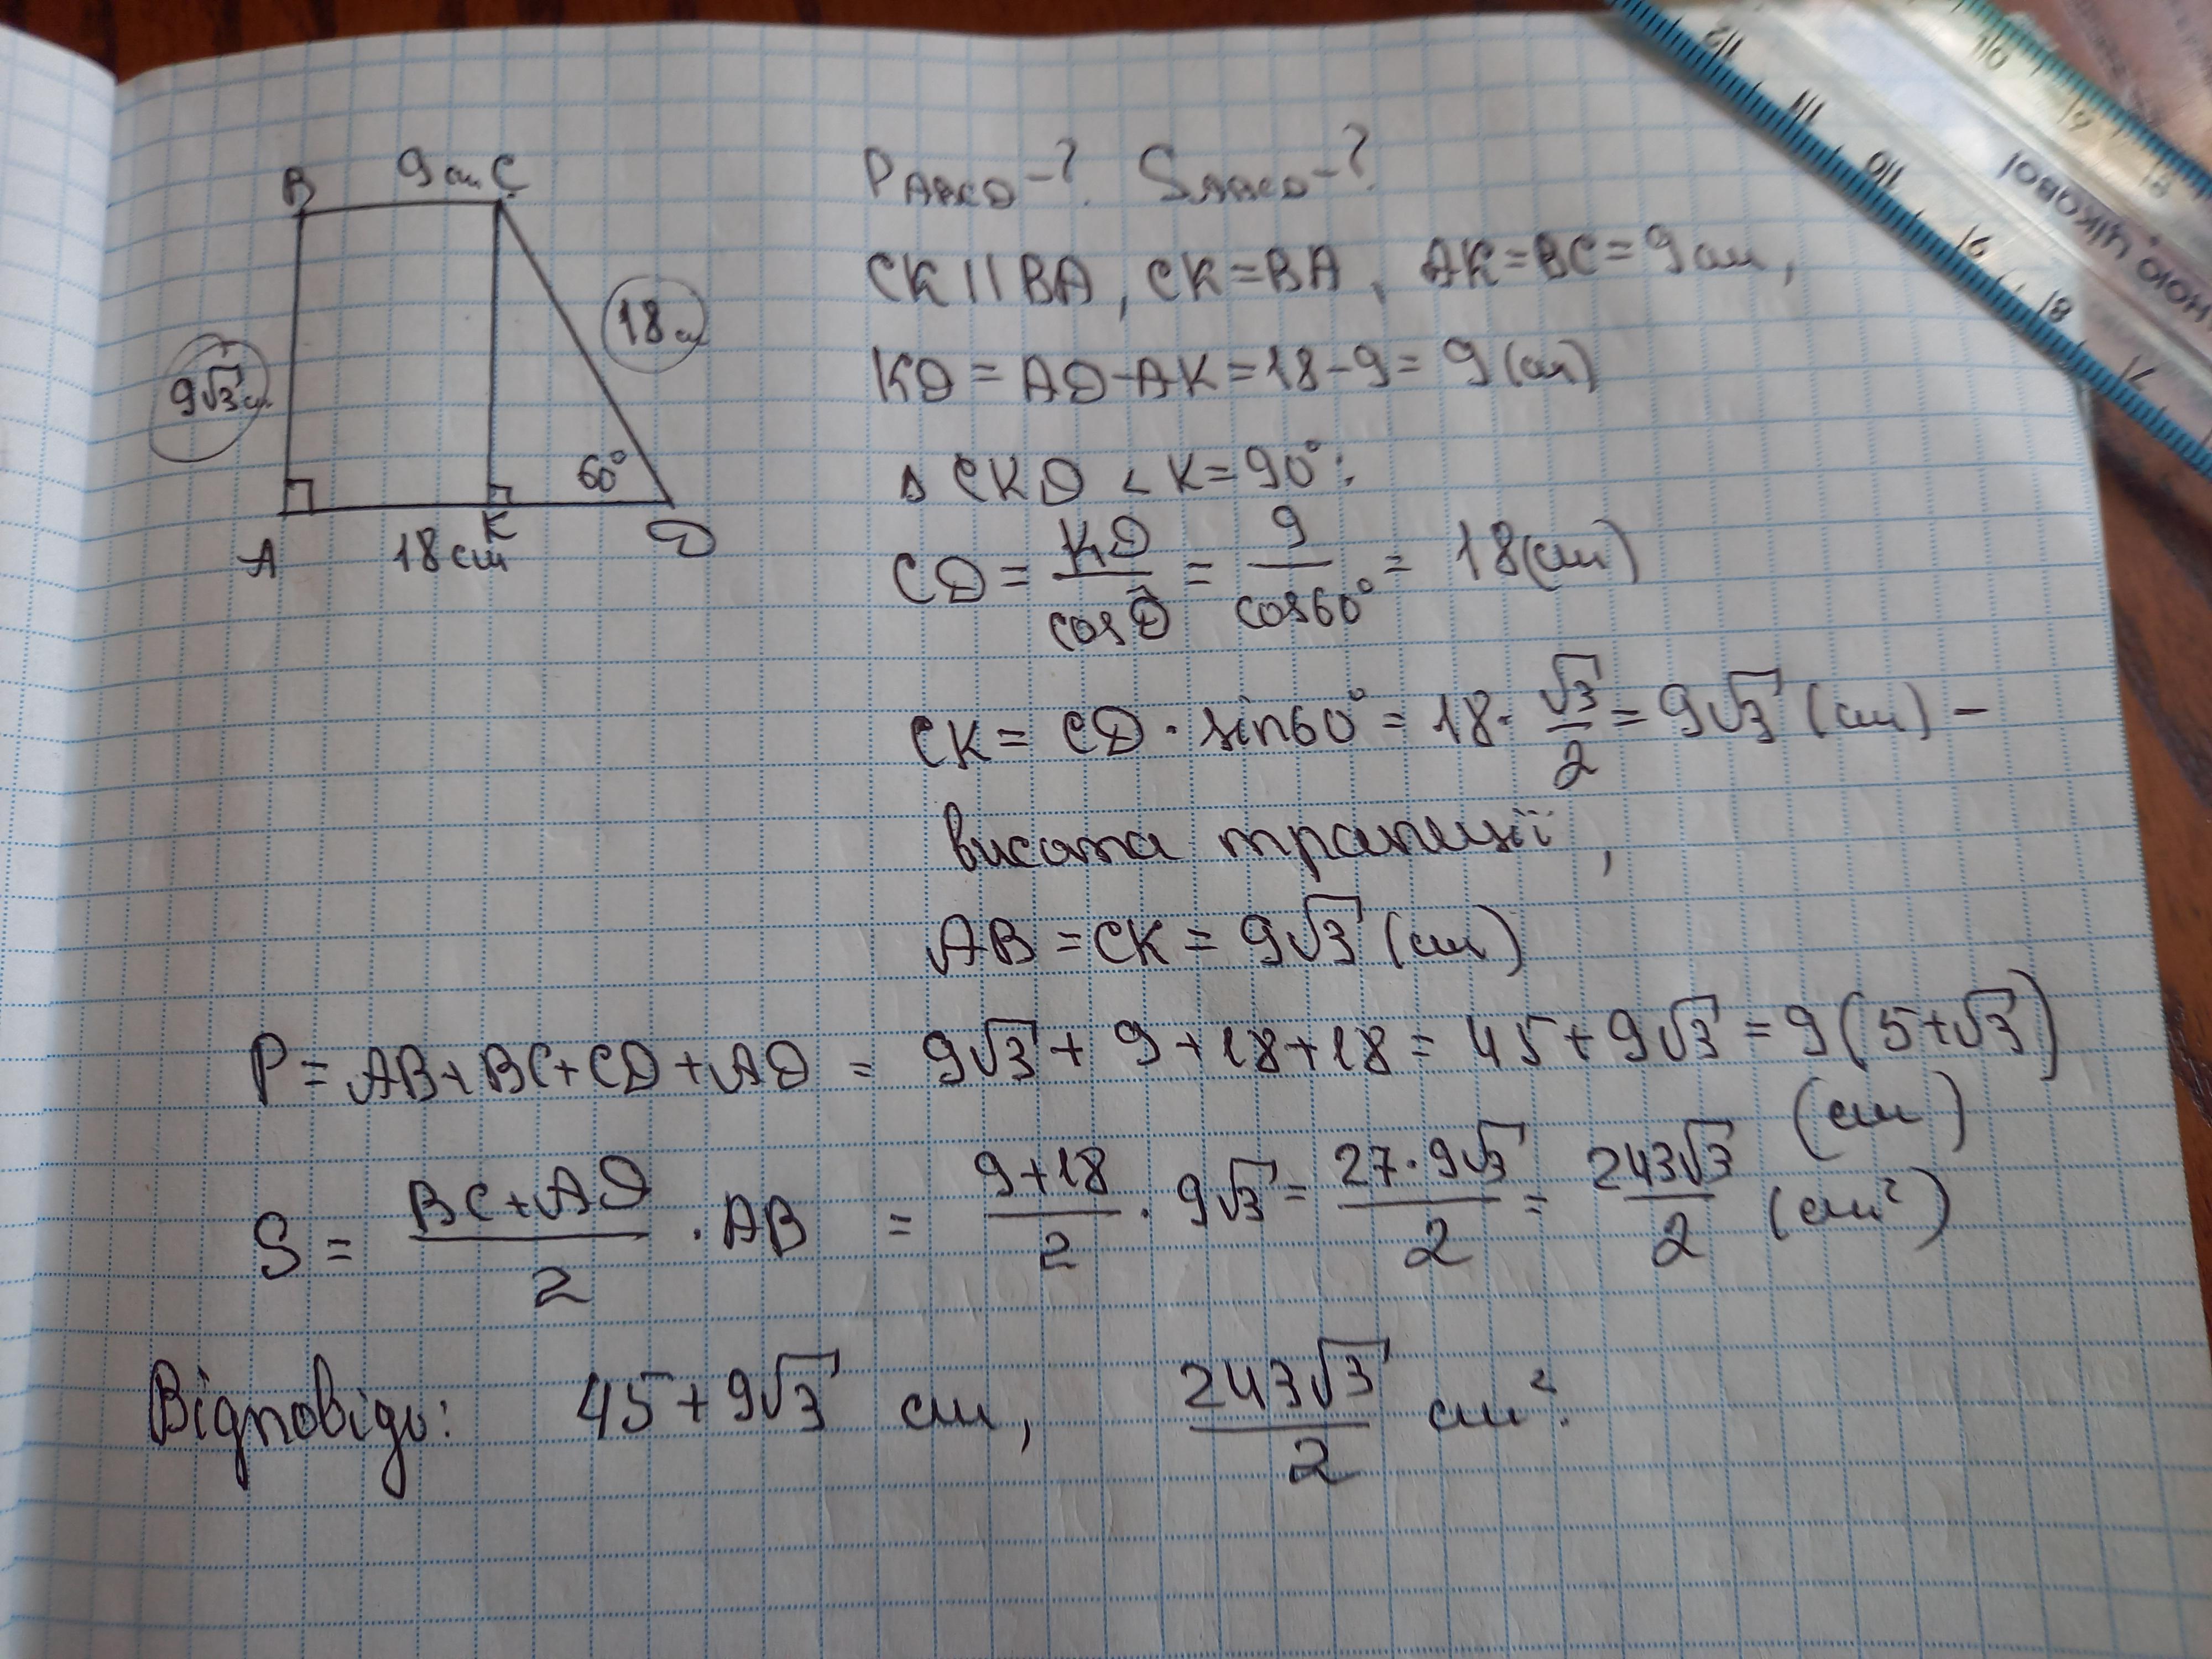 B 9 см C
9√3 см
18 см
60°
A 18 см K D
P ABCD - ? S ABCD - ?
CK || BA, CK = BA, AK = BC = 9 см,
KD = AD - AK = 18 - 9 = 9 (см)
Δ CKD < K = 90°:
CD = KD / cos D = 9 / cos 60° = 18 (см)
CK = CD · sin 60° = 18 · √3/2 = 9√3 (см) –
висота трапеції,
AB = CK = 9√3 (см)
P = AB + BC + CD + AD = 9√3 + 9 + 18 + 18 = 45 + 9√3 = 9(5 + √3)
(см)
S = (BC + AD)/2 · AB = (9 + 18)/2 · 9√3 = (27 · 9√3)/2 = 243√3/2 (см²)
Відповідь: 45 + 9√3 см, 243√3/2 см².
12 11 10 9 8 7